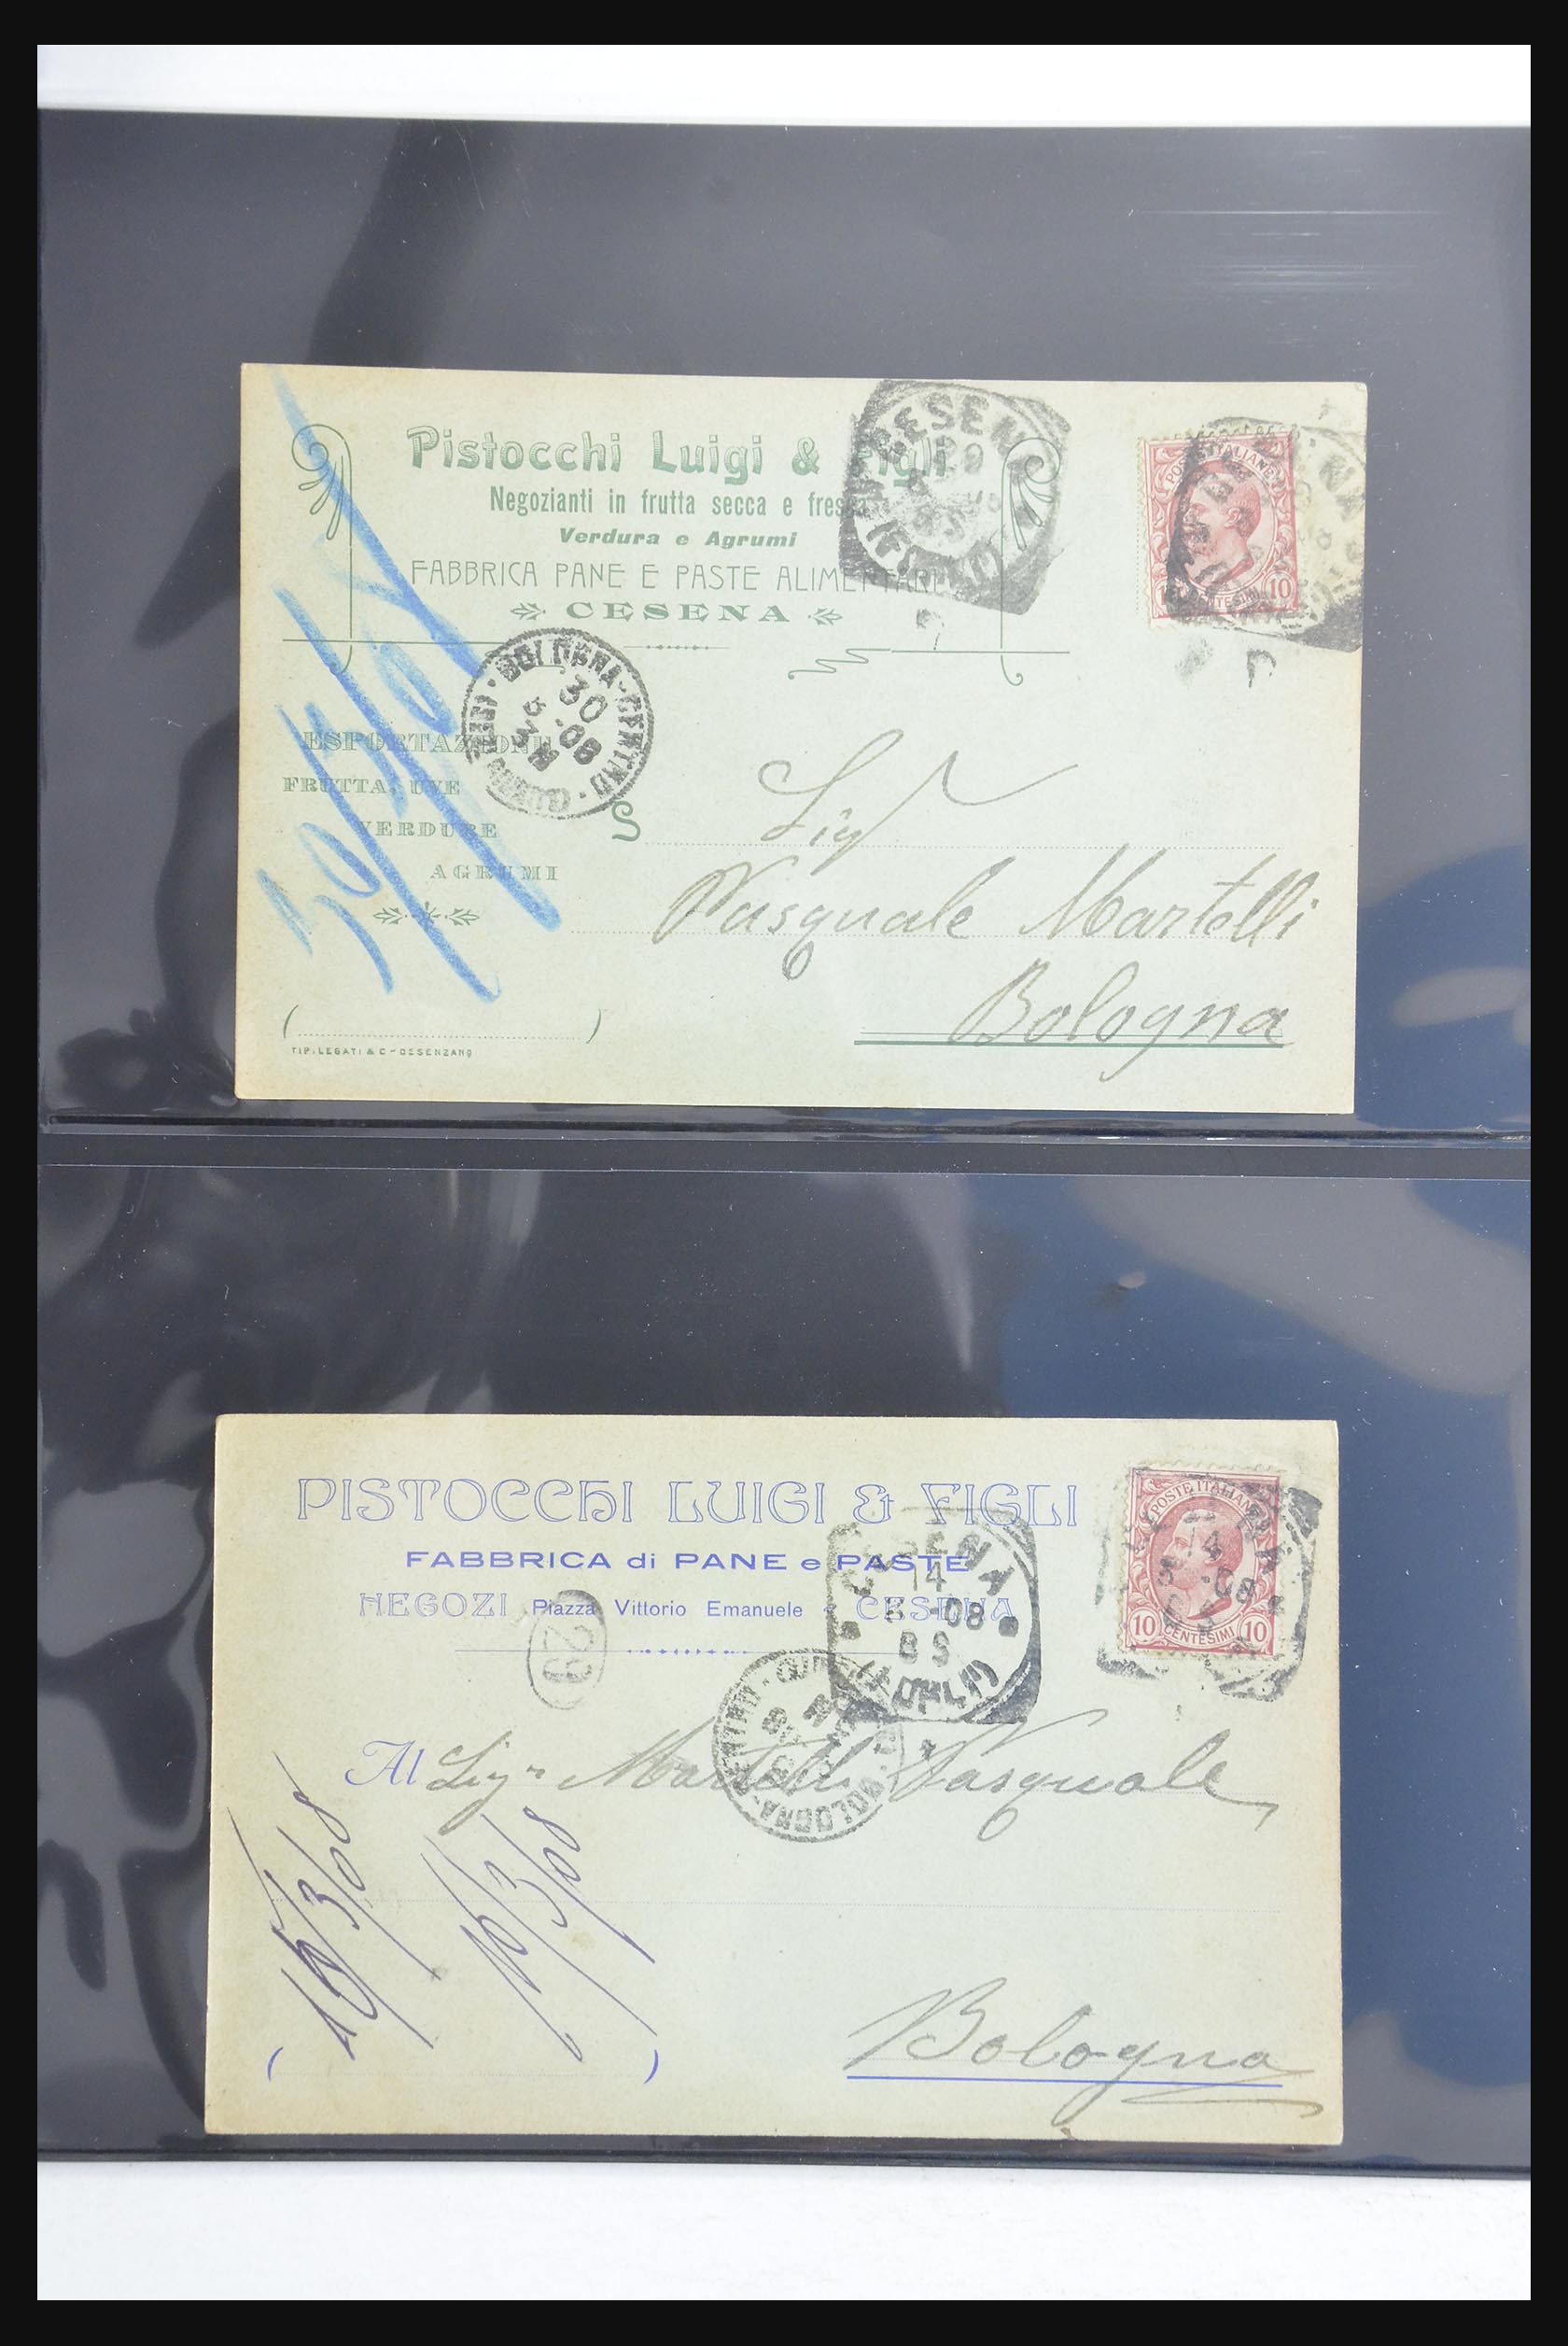 Pistocchi Luigi & Figli
Negozianti in frutta secca e fresca
Verdura e Agrumi
FABBRICA PANE E PASTE ALIMENTARI
CESENA
CESENA
29
POSTE ITALIANE
CENTESIMI 10
BOLOGNA-CENTRO
30
08
ESPORTAZIONE
FRUTTA, UVE
VERDURE
AGRUMI
Sig
Pasquale Martelli
Bologna
( )
TIP. LEGATI & C-DESENZANO
PISTOCCHI LUIGI & FIGLI
FABBRICA di PANE e PASTE
NEGOZI Piazza Vittorio Emanuele - CESENA
CESENA
14
3 -08
8 S
(FORLI)
POSTE ITALIANE
10 CENTESIMI 10
29
BOLOGNA-CENTRO
Al Sigr Martelli Pasquale
15/3/08
16/3/08
Bologna
( )